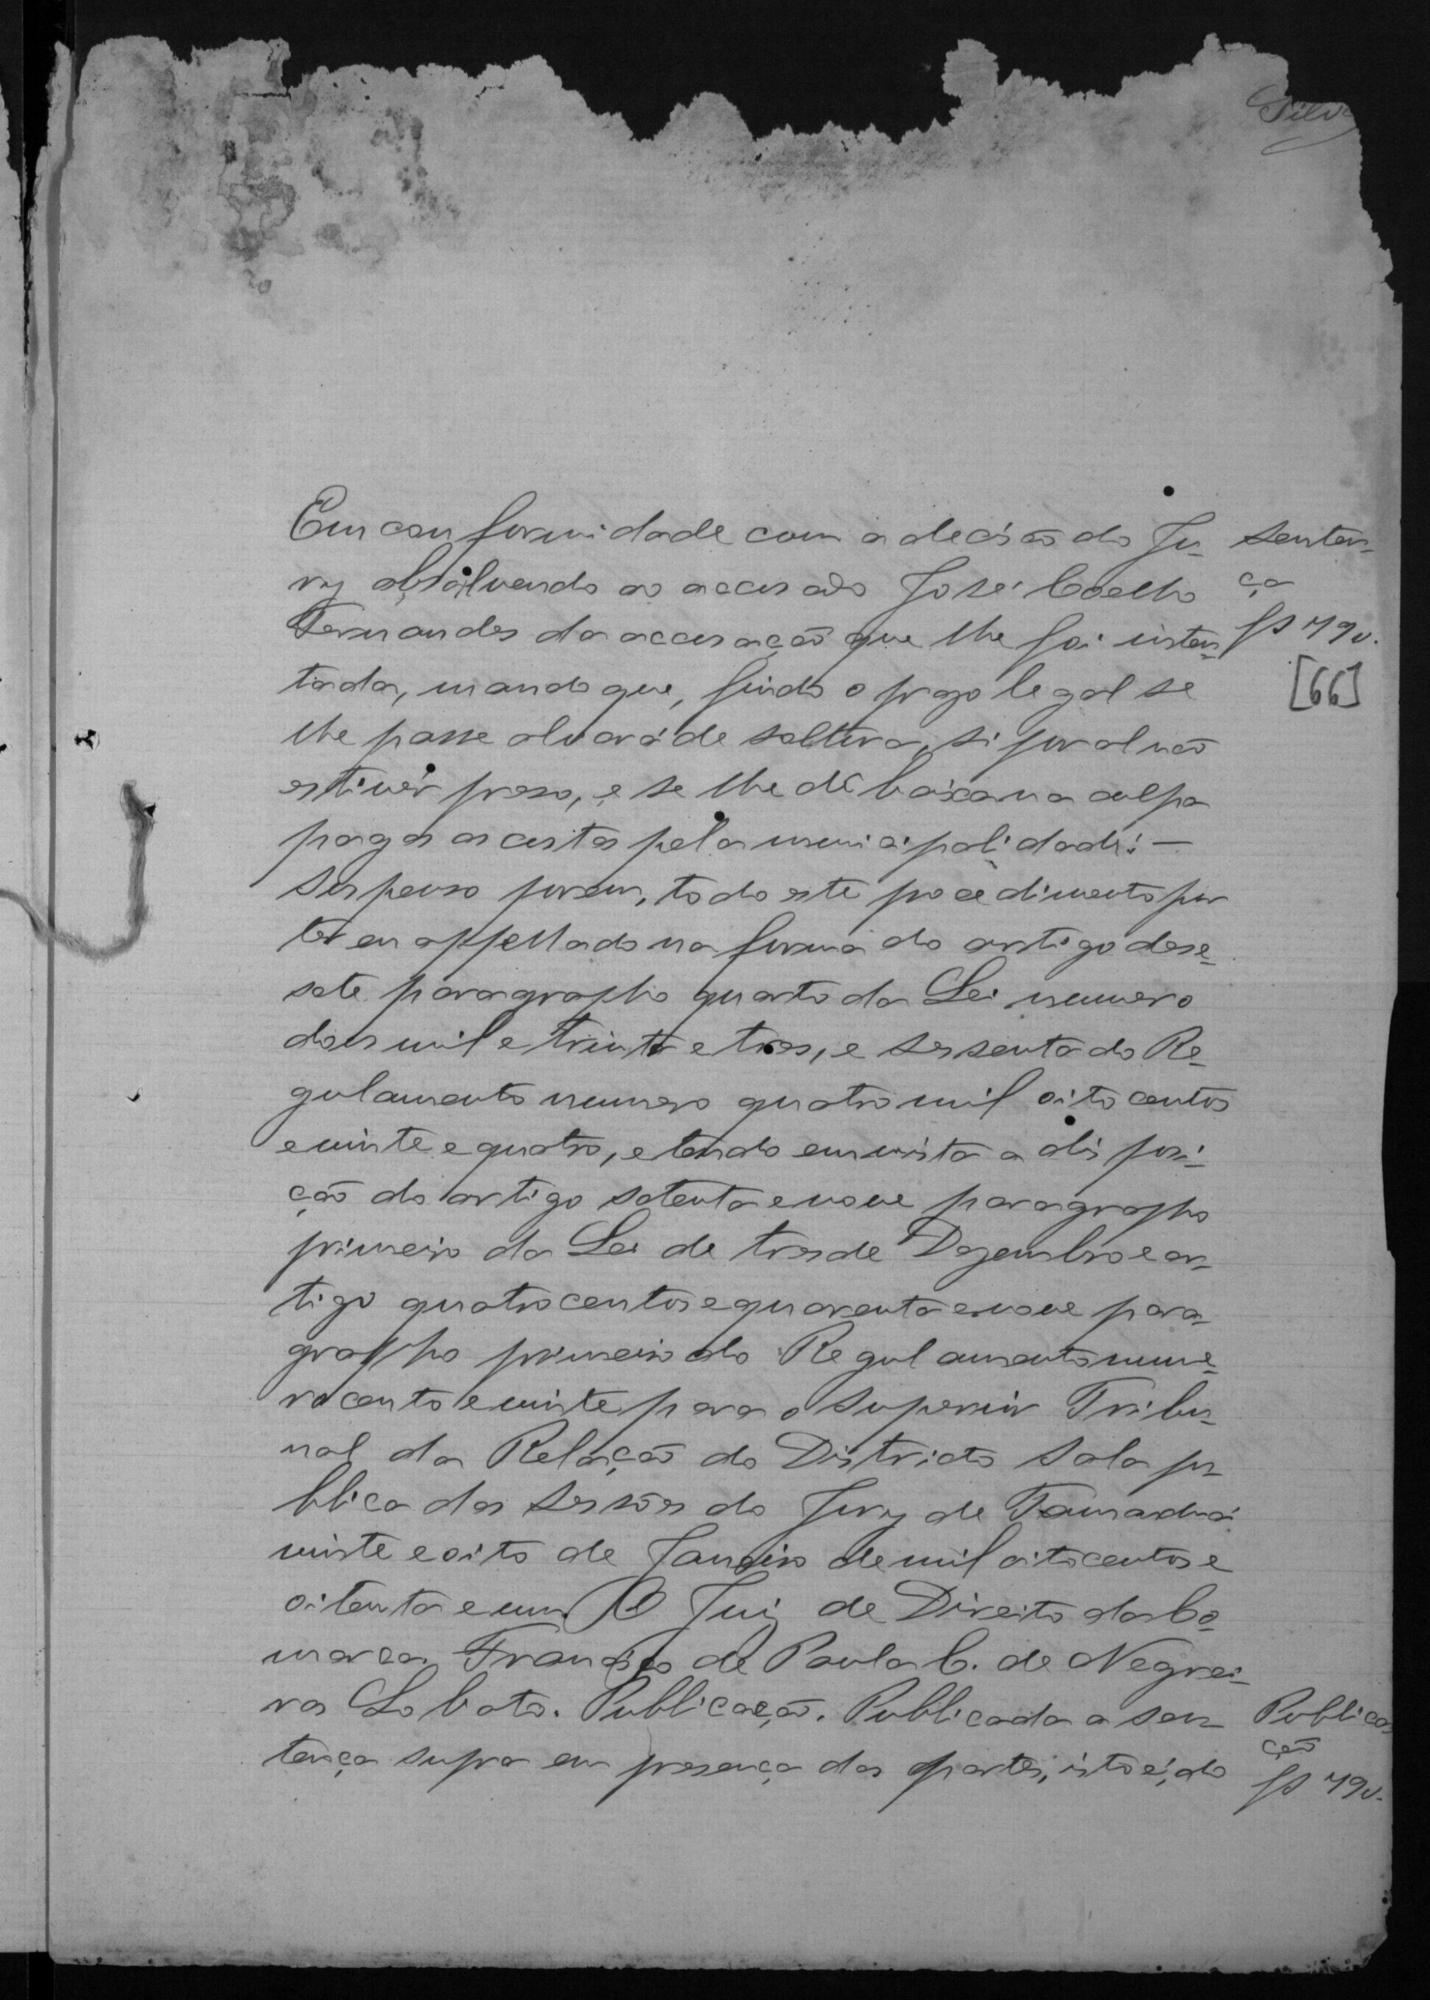 Silva
Em conformidade com a decisão do Ju-
ry absolvendo ao accusado José Coelho
Fernandes da accusação que lhe foi inten-
tada, mando que, findo o prazo legal se
lhe passe alvará de soltura, si por al não
estivér preso, e se lhe dê baixa na culpa
pagas as custas pela municipalidade: —
Suspenso porem, todo este procedimento por
ter eu appellado na forma do artigo dese-
sete paragrapho quarto da Lei numero
dous mil e trinta e tres, e sessenta do Re-
gulamento numero quatro mil oito centos
e vinte e quatro, e tendo em vista a dispozi-
ção do artigo setenta e nove paragrapho
primeiro da Lei de tres de Dezembro e ar-
tigo quatrocentos e quarenta e nove para-
grapho primeiro do Regulamento nume-
ro cento e vinte para o Superior Tribu-
nal da Relação do Districto Sala pu-
blica das Sessões do Jury de Tamanduá
vinte e oito de Janeiro de mil oitocentos e
oitenta e um. O Juiz de Direito da Co-
marca Francisco de Paula C. de Negrei-
ros Lobato. Publicação. Publicada a sen-
tença supra em presença das partes, isto é, do
Senten-
ça
fs 79v.
[66]
Publica-
ção
fs 79v.